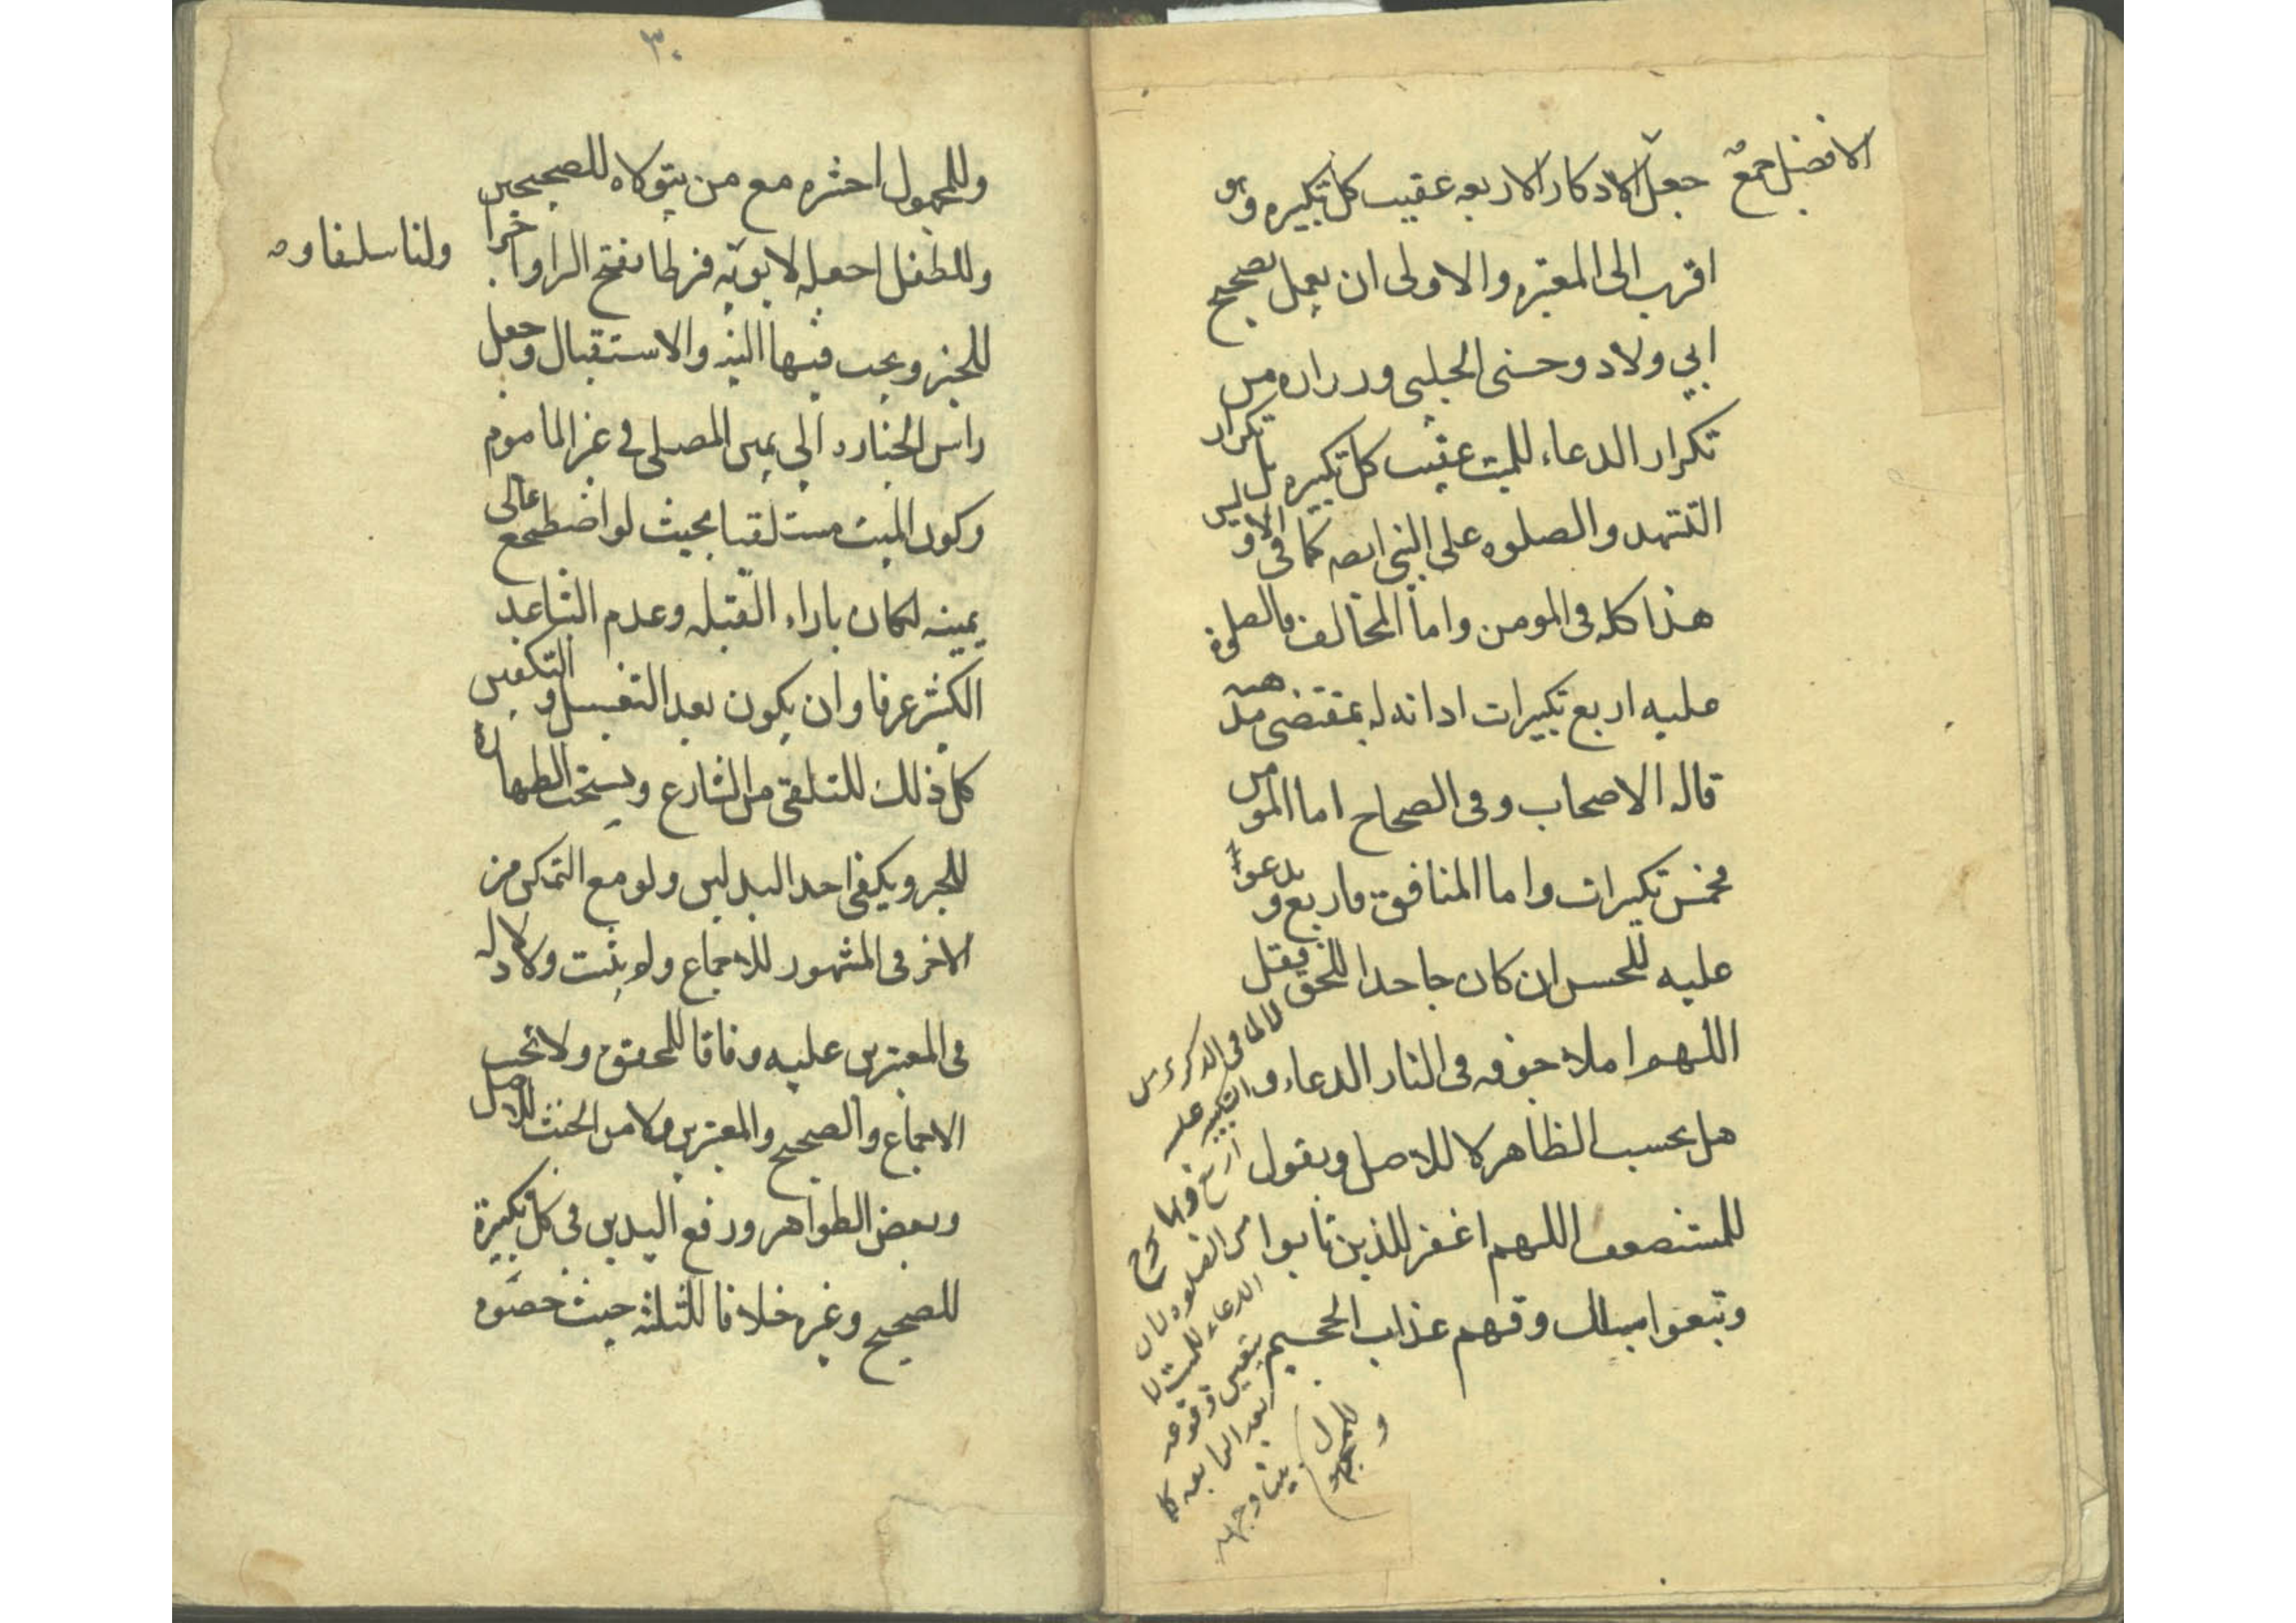 الافضل جمع جعل الاذكار الاربعه عقيب كل تكبيره وهو
اقرب الى المعتبره والاولى ان يعمل بصحيح
ابي ولاد وحسنى الحلبي وزراره من
تكرار الدعاء للميت عقيب كل تكبيره بل تكرار
التشهد والصلوه على النبي ايضه كما في الاولين
هذا كله في المومن واما المخالف فالصلوة
عليه اربع تكبيرات ادانه له بمقتضى مذهبه
قاله الاصحاب وفي الصحاح اما المومن
فخمس تكبيرات واما المنافق فاربع و يدعو
عليه للحسن ان كان جاحدا للحق فقل
اللهم املا جوفه في النار الدعاء و
هل بحسب الظاهر لا للاصل ويقول
للمستضعف اللهم اغفر للذين تابوا
وتبعوا سبيلك وقهم عذاب الجحيم
وللمجهول
لا لما في الذكرى من
ان التكبير عليه
اربع وبها يخرج
من الصلوه لان
الدعاء للميت لا
يتعين وقوعه
بعد الرابعه كما
بينا وجهه
٣٠
وللمجهول احشره مع من يتولاه للصحيحين
وللطفل اجعله لابويه فرطا بفتح الرا واجرا
ولنا سلفا وه
للخبر ويجب فيها النيه والاستقبال وجعل
راس الجنازه الى يمين المصلى في غير الماموم
وكون الميت مستلقيا بحيث لو اضطجع على
يمينه لكان بازاء القبله وعدم التباعد
الكثير عرفا وان يكون بعد التغسيل و التكفين
كل ذلك للتلقي من الشارع ويستحب الطهارة
للخبر ويكفي احد البدلين ولو مع التمكن من
الاخر في المشهور للاجماع ولم يثبت ولا دلاله
في المعتبرين عليه وفاقا للمحقق ولا تجب
الاجماع والصحيح والمعتبرين ولا من الخبث للاصل
وبعض الظواهر ورفع اليدين في كل تكبيرة
للصحيح وغيره خلافا للثلثه حيث خصوه